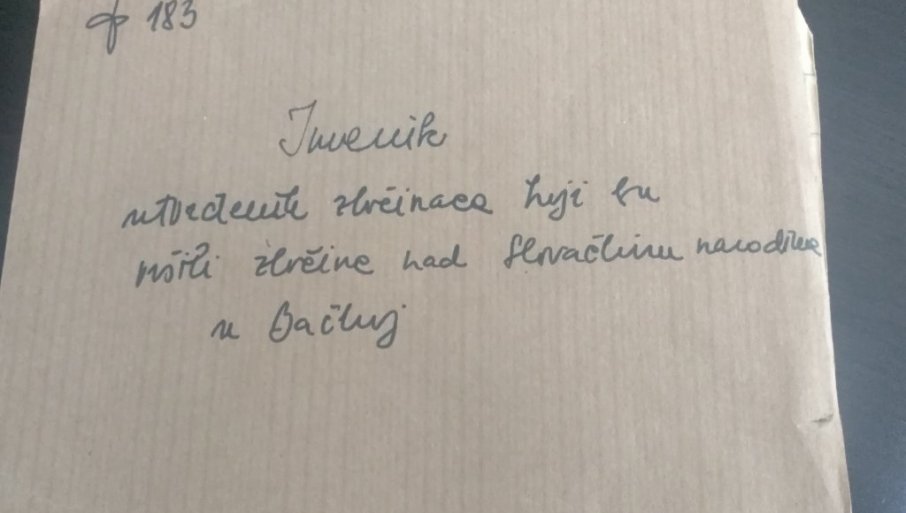 183
Imenik
utvrđenih zločinaca koji su
vršili zločine nad slovačkim narodom
u Bačkoj